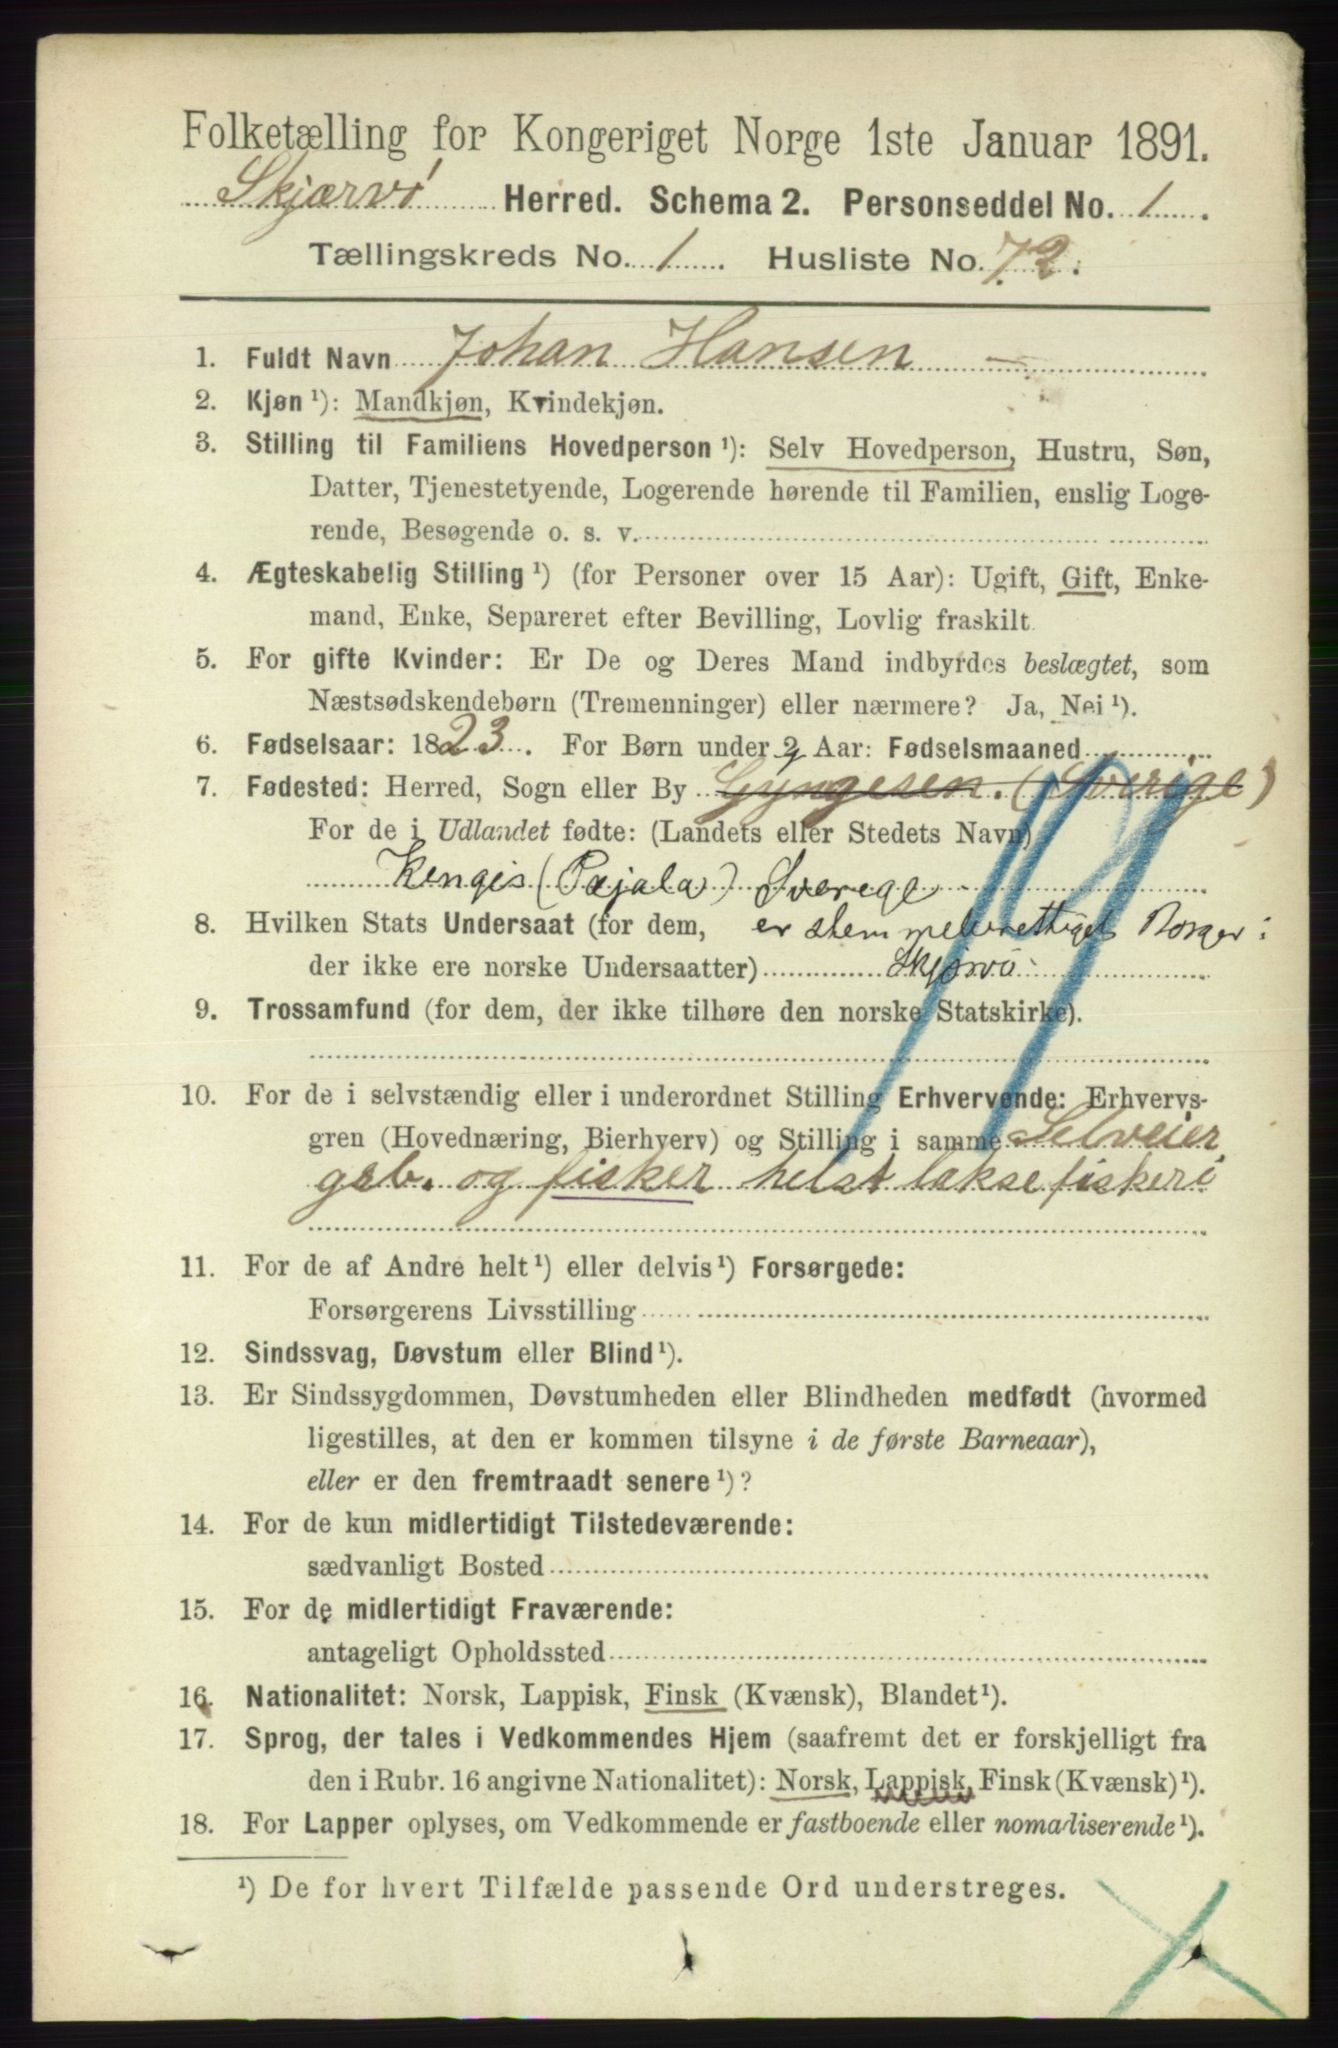 Folketælling for Kongeriget Norge 1ste Januar 1891.
Skjærvö Herred. Schema 2. Personseddel No. 1.
Tællingskreds No. 1 Husliste No. 72.
1. Fuldt Navn Johan Hansen
2. Kjøn ¹): Mandkjøn, Kvindekjøn.
3. Stilling til Familiens Hovedperson ¹): Selv Hovedperson, Hustru, Søn,
Datter, Tjenestetyende, Logerende hørende til Familien, enslig Loge-
rende, Besøgende o. s. v.
4. Ægteskabelig Stilling ¹) (for Personer over 15 Aar): Ugift, Gift, Enke-
mand, Enke, Separeret efter Bevilling, Lovlig fraskilt
5. For gifte Kvinder: Er De og Deres Mand indbyrdes beslægtet, som
Næstsødskendebørn (Tremenninger) eller nærmere? Ja, Nei ¹).
6. Fødselsaar: 1823. For Børn under 2 Aar: Fødselsmaaned
7. Fødested: Herred, Sogn eller By Gyngesen. (Sverige)
For de i Udlandet fødte: (Landets eller Stedets Navn)
Kengis (Pajala) Sverege
8. Hvilken Stats Undersaat (for dem, er stemmeberettiget Borger i
der ikke ere norske Undersaatter) Skjærvö
9. Trossamfund (for dem, der ikke tilhøre den norske Statskirke).
10. For de i selvstændig eller i underordnet Stilling Erhvervende: Erhvervs-
gren (Hovednæring, Bierhverv) og Stilling i samme Selveier
grb. og fisker helst laksefiskeri
11. For de af Andre helt ¹) eller delvis ¹) Forsørgede:
Forsørgerens Livsstilling
12. Sindssvag, Døvstum eller Blind ¹).
13. Er Sindssygdommen, Døvstumheden eller Blindheden medfødt (hvormed
ligestilles, at den er kommen tilsyne i de første Barneaar),
eller er den fremtraadt senere ¹)?
14. For de kun midlertidigt Tilstedeværende:
sædvanligt Bosted
15. For de midlertidigt Fraværende:
antageligt Opholdssted
16. Nationalitet: Norsk, Lappisk, Finsk (Kvænsk), Blandet ¹).
17. Sprog, der tales i Vedkommendes Hjem (saafremt det er forskjelligt fra
den i Rubr. 16 angivne Nationalitet): Norsk, Lappisk, Finsk (Kvænsk) ¹).
18. For Lapper oplyses, om Vedkommende er fastboende eller nomadiserende ¹).
¹) De for hvert Tilfælde passende Ord understreges.